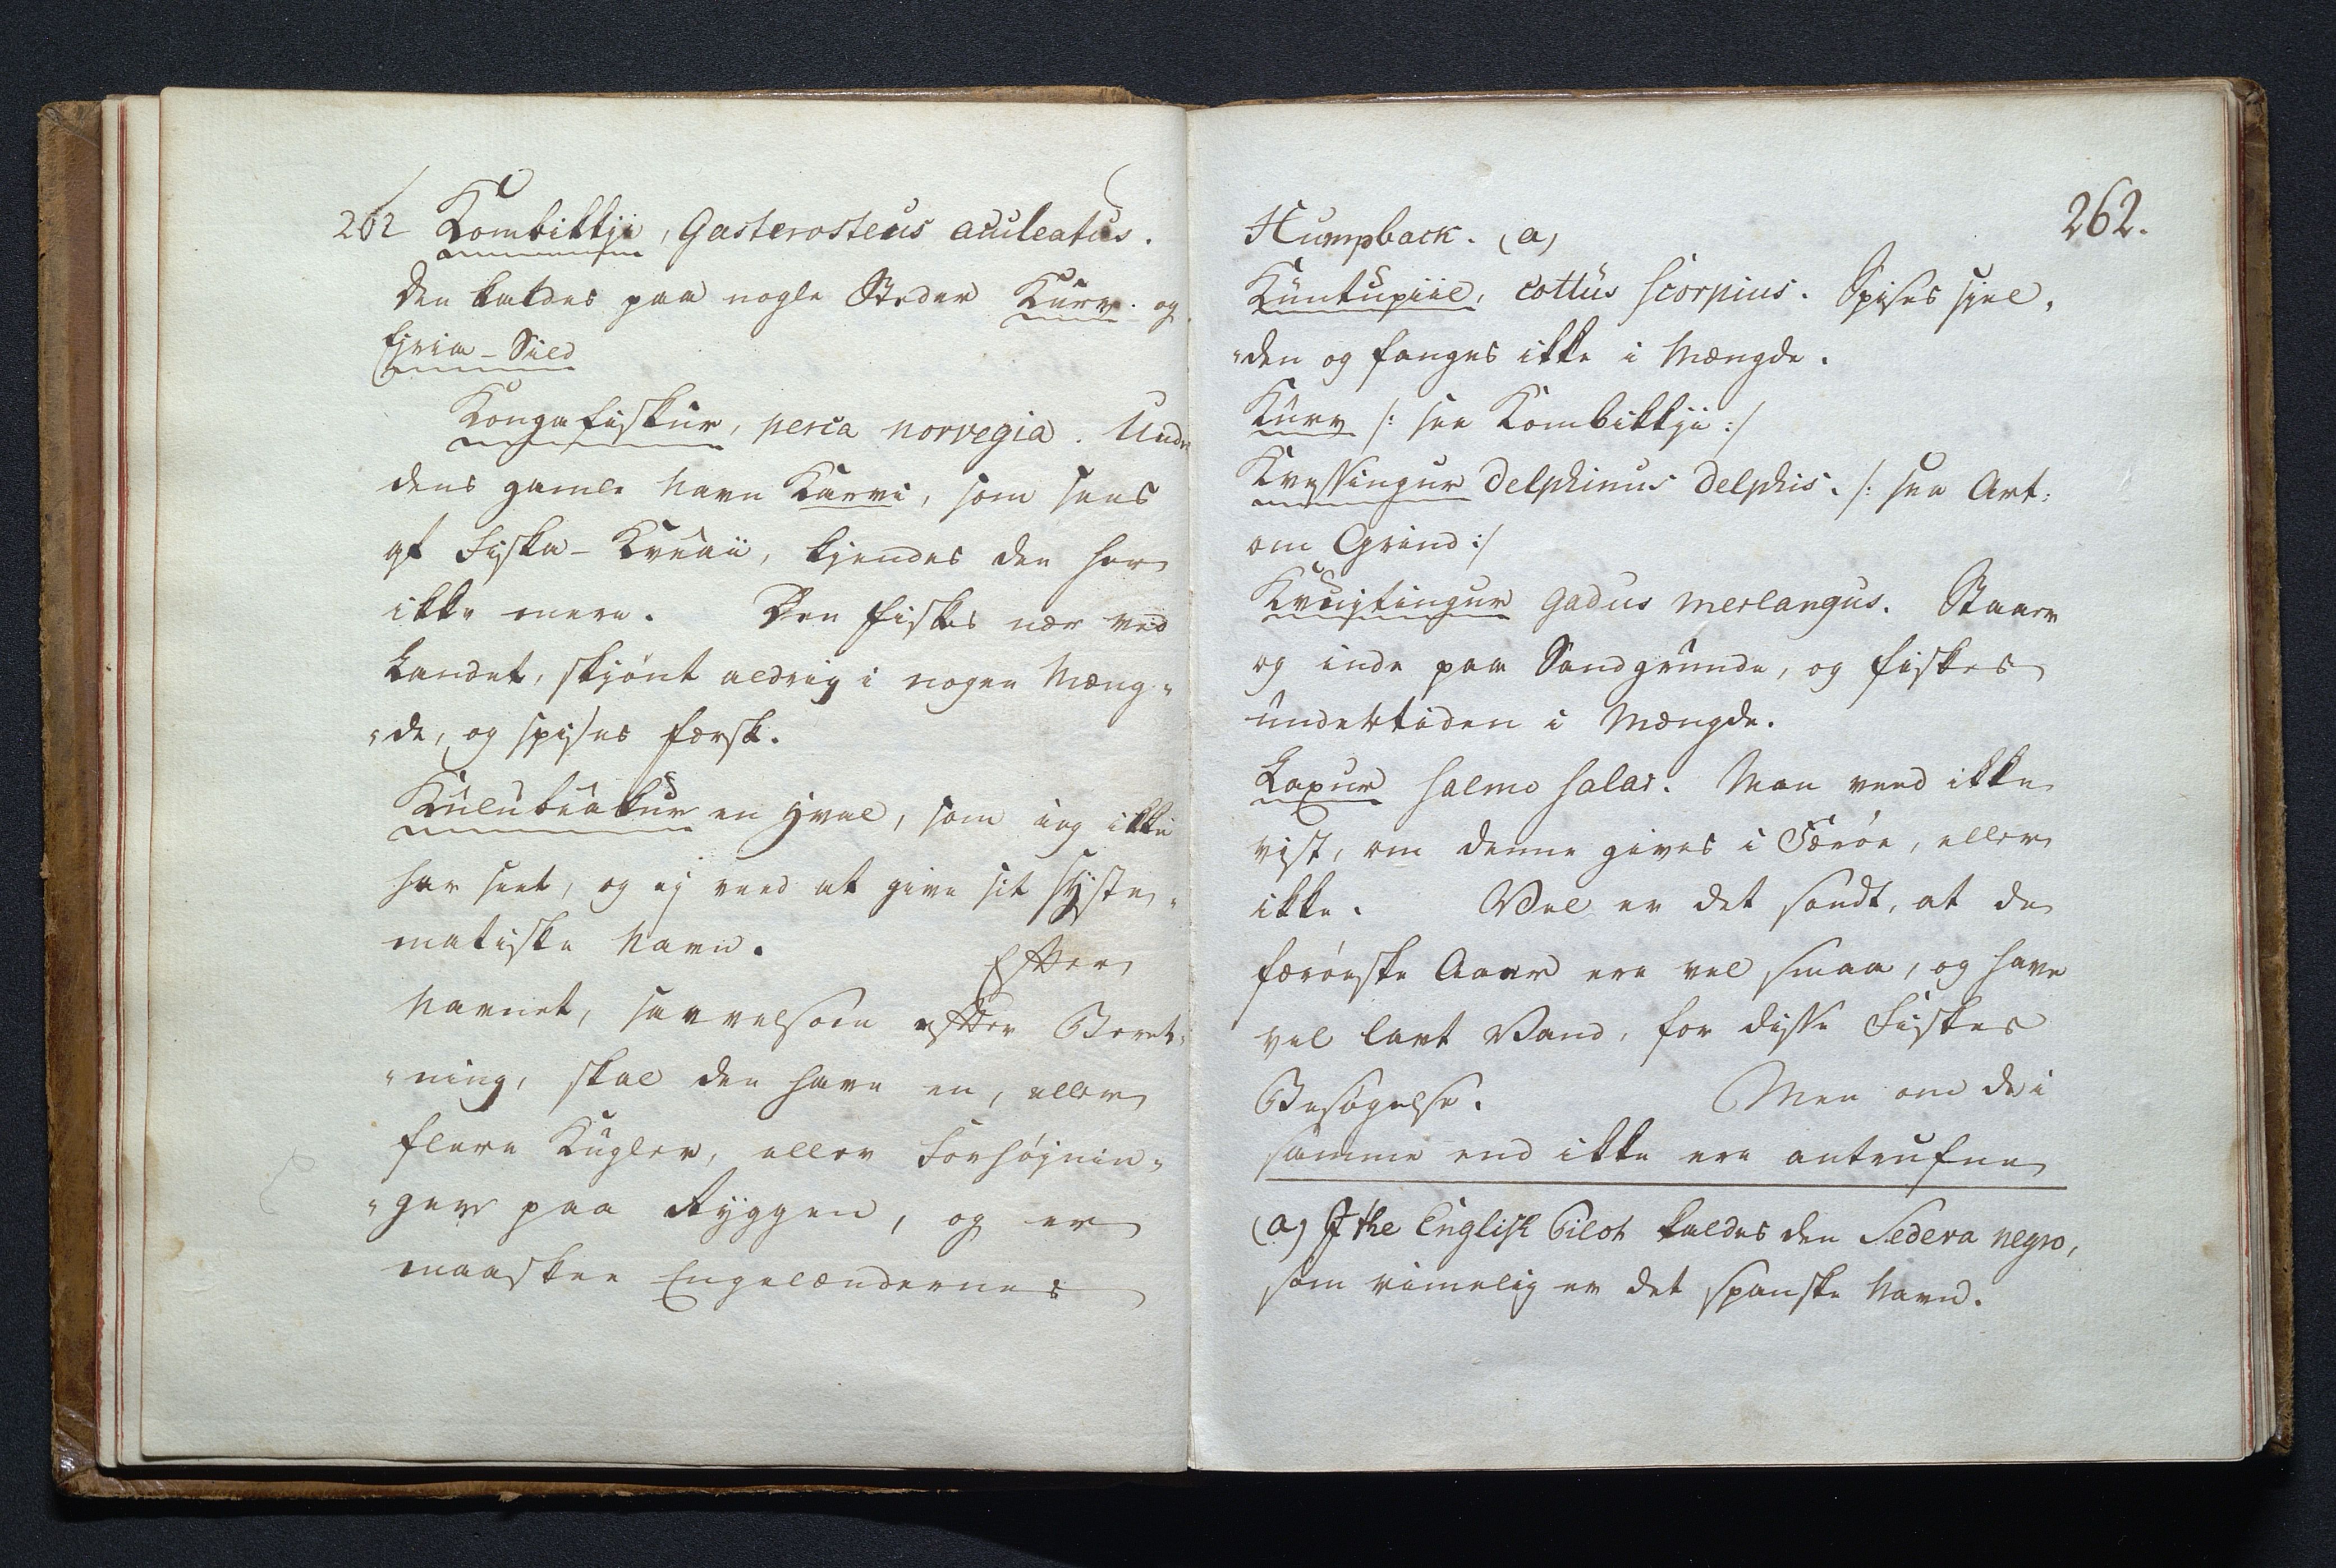 262 Kombikkji, Gasterosteus aculeatus.
Den kaldes paa nogle Steder Kurv. og
Ejria-Sild
Kongafiskur, perca norvegia. Under
dens gamle Navn Karvi, som sees
af Fiska-Kvæaii, kjendes den her
ikke mere. Den fiskes nær ved
Landet, skjönt aldrig i nogen Mæng-
-de, og spises færsk.
Kúlubøakur en Hval, som jeg ikke
har seet, og ej veed at give sit syste-
matiske Navn. Efter
Navnet, saavelsom efter Beret-
-ning, skal den have en, eller
flere Kugler, eller Forhøjnin-
-ger paa Ryggen, og er
maaskee Engelændernes
262.
Humpback. (a)
Kuntupiil, cottus scorpius. Spises sjel-
-den og fanges ikke i Mængde.
Kurv /: see Kombikkji :/
Kvessingur Delphinus Delphis. /: see Art:
om Grind :/
Kvujtingur gadus merlangus. Staaer
og inde paa Sandgrunde, og fiskes
undertiden i Mængde.
Laxur salmo salar. Man veed ikke
vist, om denne gives i Færöe, eller
ikke. Vel er det sandt, at de
færöeske Aaer ere vel smaa, og have
vel lavt Vand, for disse Fiskes
Besøgelse. Men om de i
samme end ikke ere antrufne
(a) I the English Pilot kaldes den Sedera negro,
som rimelig er det spanske Navn.